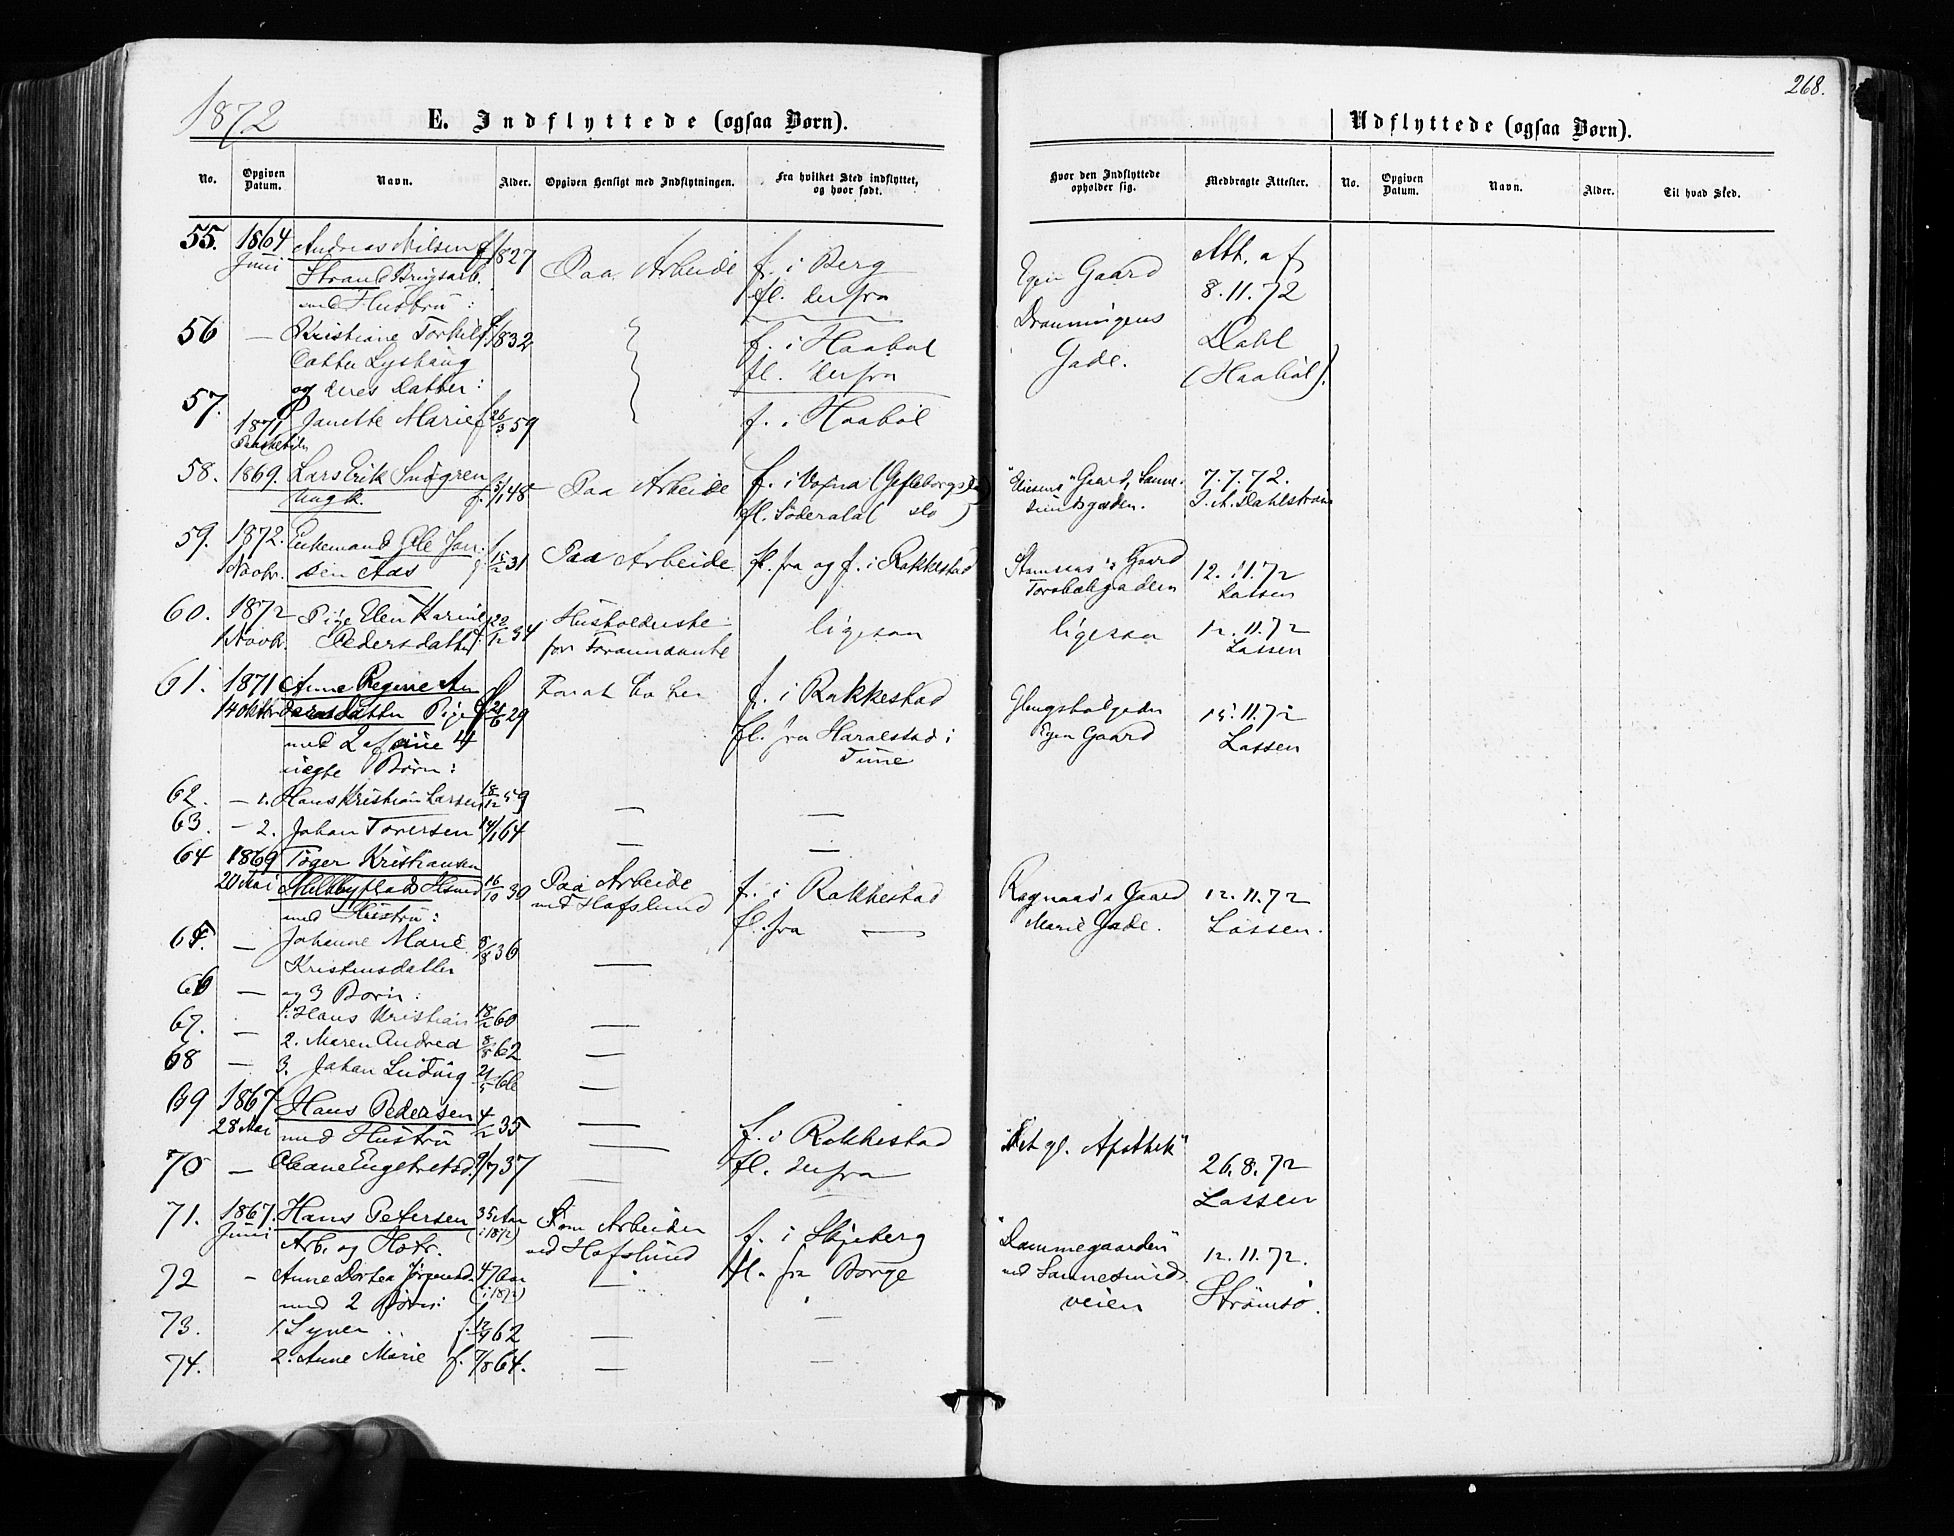 268.
1872
E. Indflyttede (ogsaa Børn).
Udflyttede (ogsaa Børn).
No. Opgiven Datum. Navn. Alder. Opgiven Hensigt med Indflytningen. Fra hvilket Sted indflyttet, og hvor født. Hvor den Indflyttede opholder sig. Medbragte Attester. No. Opgiven Datum. Navn. Alder. Til hvad Sted.
55. 1864 Andreas Nilsen f. 1827 Paa Arbeide f. i Berg Egen Gaard Att. af
Juni Strand Brugsarb. fl. derfra 8.11.72
med Hustru : Dronningens
56 — Kristiane Torkils f. 1832 f. i Haabøl Gade. Dahl
Datter Lyshaug fl. derfra (Haabøl).
og deres Datter :
57. 1871 Janette Marie f 26/3 59 f. i Haabøl
58. 1869. Lars Erik Snögren f. 5/1 48 Paa Arbeide f. i (Gefleborgs Gaard, Sanne- 7.7.72.
Ungk. fl. Söderala ( do ) sundsgaden. Dahlstrøm
59. 1872. Enkemand Ole Jan- f 15/2 31 Paa Arbeide fl. fra og f. i Rakkestad Gaard 12.11.72
Novbr. sen Aas Lassen
60. 1872 Pige Elen Karine 22/12 34 Husholderske ligesaa ligesaa 12.11.72
Novbr. Pedersdatter for Forannævnte Lassen
61. 1871 Anne Regine An f. i Rakkestad 15.11.72
14 Oktbr dersdatter Pige f 21/6 29 fl. fra Haralstad i Egen Gaard Lassen
med 2 af sine 4 Tune
uægte Børn :
62. — 1. Hans Kristian Larsen 18/12 59 — —
63. — 2. Johan Toversen 14/1 64 — —
64 1869 Töger Kristiansen Paa Arbeide
20 Mai 16/10 30 ved Hafslund f. i Rakkestad Gaard 12.11.72
med Hustru : fl. fra — Marie Gade. Lassen.
65. — Johanne Marie 8/8 36
Kristensdatter —
66 — og 3 Børn :
1. Hans Kristian 18/2 60 —
67. — 2. Maren Andrea 8/8 62 —
68 — 3. Johan Ludvig 21/5 66 —
69 1867 Hans Pedersen 4/2 35 — f. i Rakkestad "Det gl. Apothek"
28 Mai med Hustru — fl. derfra 26.8.72
70 — 9/7 37 — Lassen
71. 1867. Hans Petersen 35 Aar Som Arbeider f. i Skjeberg "Dammegaarden" 12.11.72.
Juni Arb. og Hstr. (i 1872) ved Hafslund fl. fra Borge ved Sannesunds- Strömsö.
72 — Anne Dortea Jørgensd. 47 Aar — veien
med 2 Børn: (i 1872)
73. 1. f. 12/4 62 — —
74. 2. Anne Marie f. 7/8 64. — —